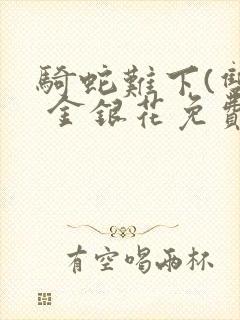 騎蛇難下(雙
金銀花免費
有空喝兩杯